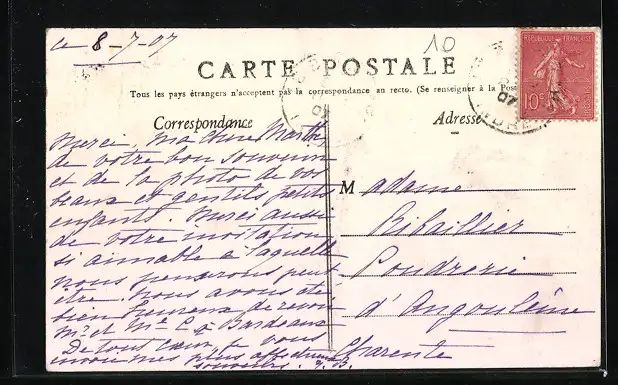 ce 8-7-07
10
CARTE POSTALE
Tous les pays étrangers n'acceptent pas la correspondance au recto. (Se renseigner à la Post
RÉPUBLIQUE FRANÇAISE
10c
07
07
INDRE
Correspondance
Adresse
Merci, ma chère Marthe
de votre bon souvenir
et de la photo de vos
beaux et gentils petits
enfants. Merci aussi
de votre invitation
si aimable à laquelle
nous penserons peut
être. Nous avons été
bien heureux de revoir
Mr et Me C à Bordeaux
De tout cœur, je vous
envoie mes plus affectueux
souvenirs.
Madame
Ribaillier
Poudrerie
d'Angoulême
Charente